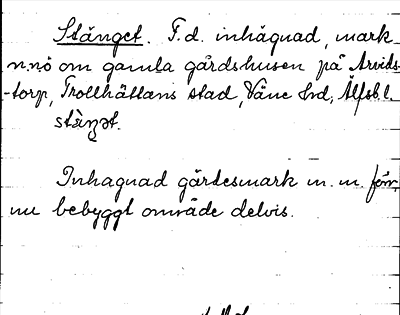 Stänget. F.d. inhägnad, mark
n.nö om gamla gårdshusen på Arvids-
-torp, Trollhättans stad, Väne hd, Älfsb l.
stäŋət.
Inhagnad gärdesmark m.m. förr,
nu bebyggt område delvis.